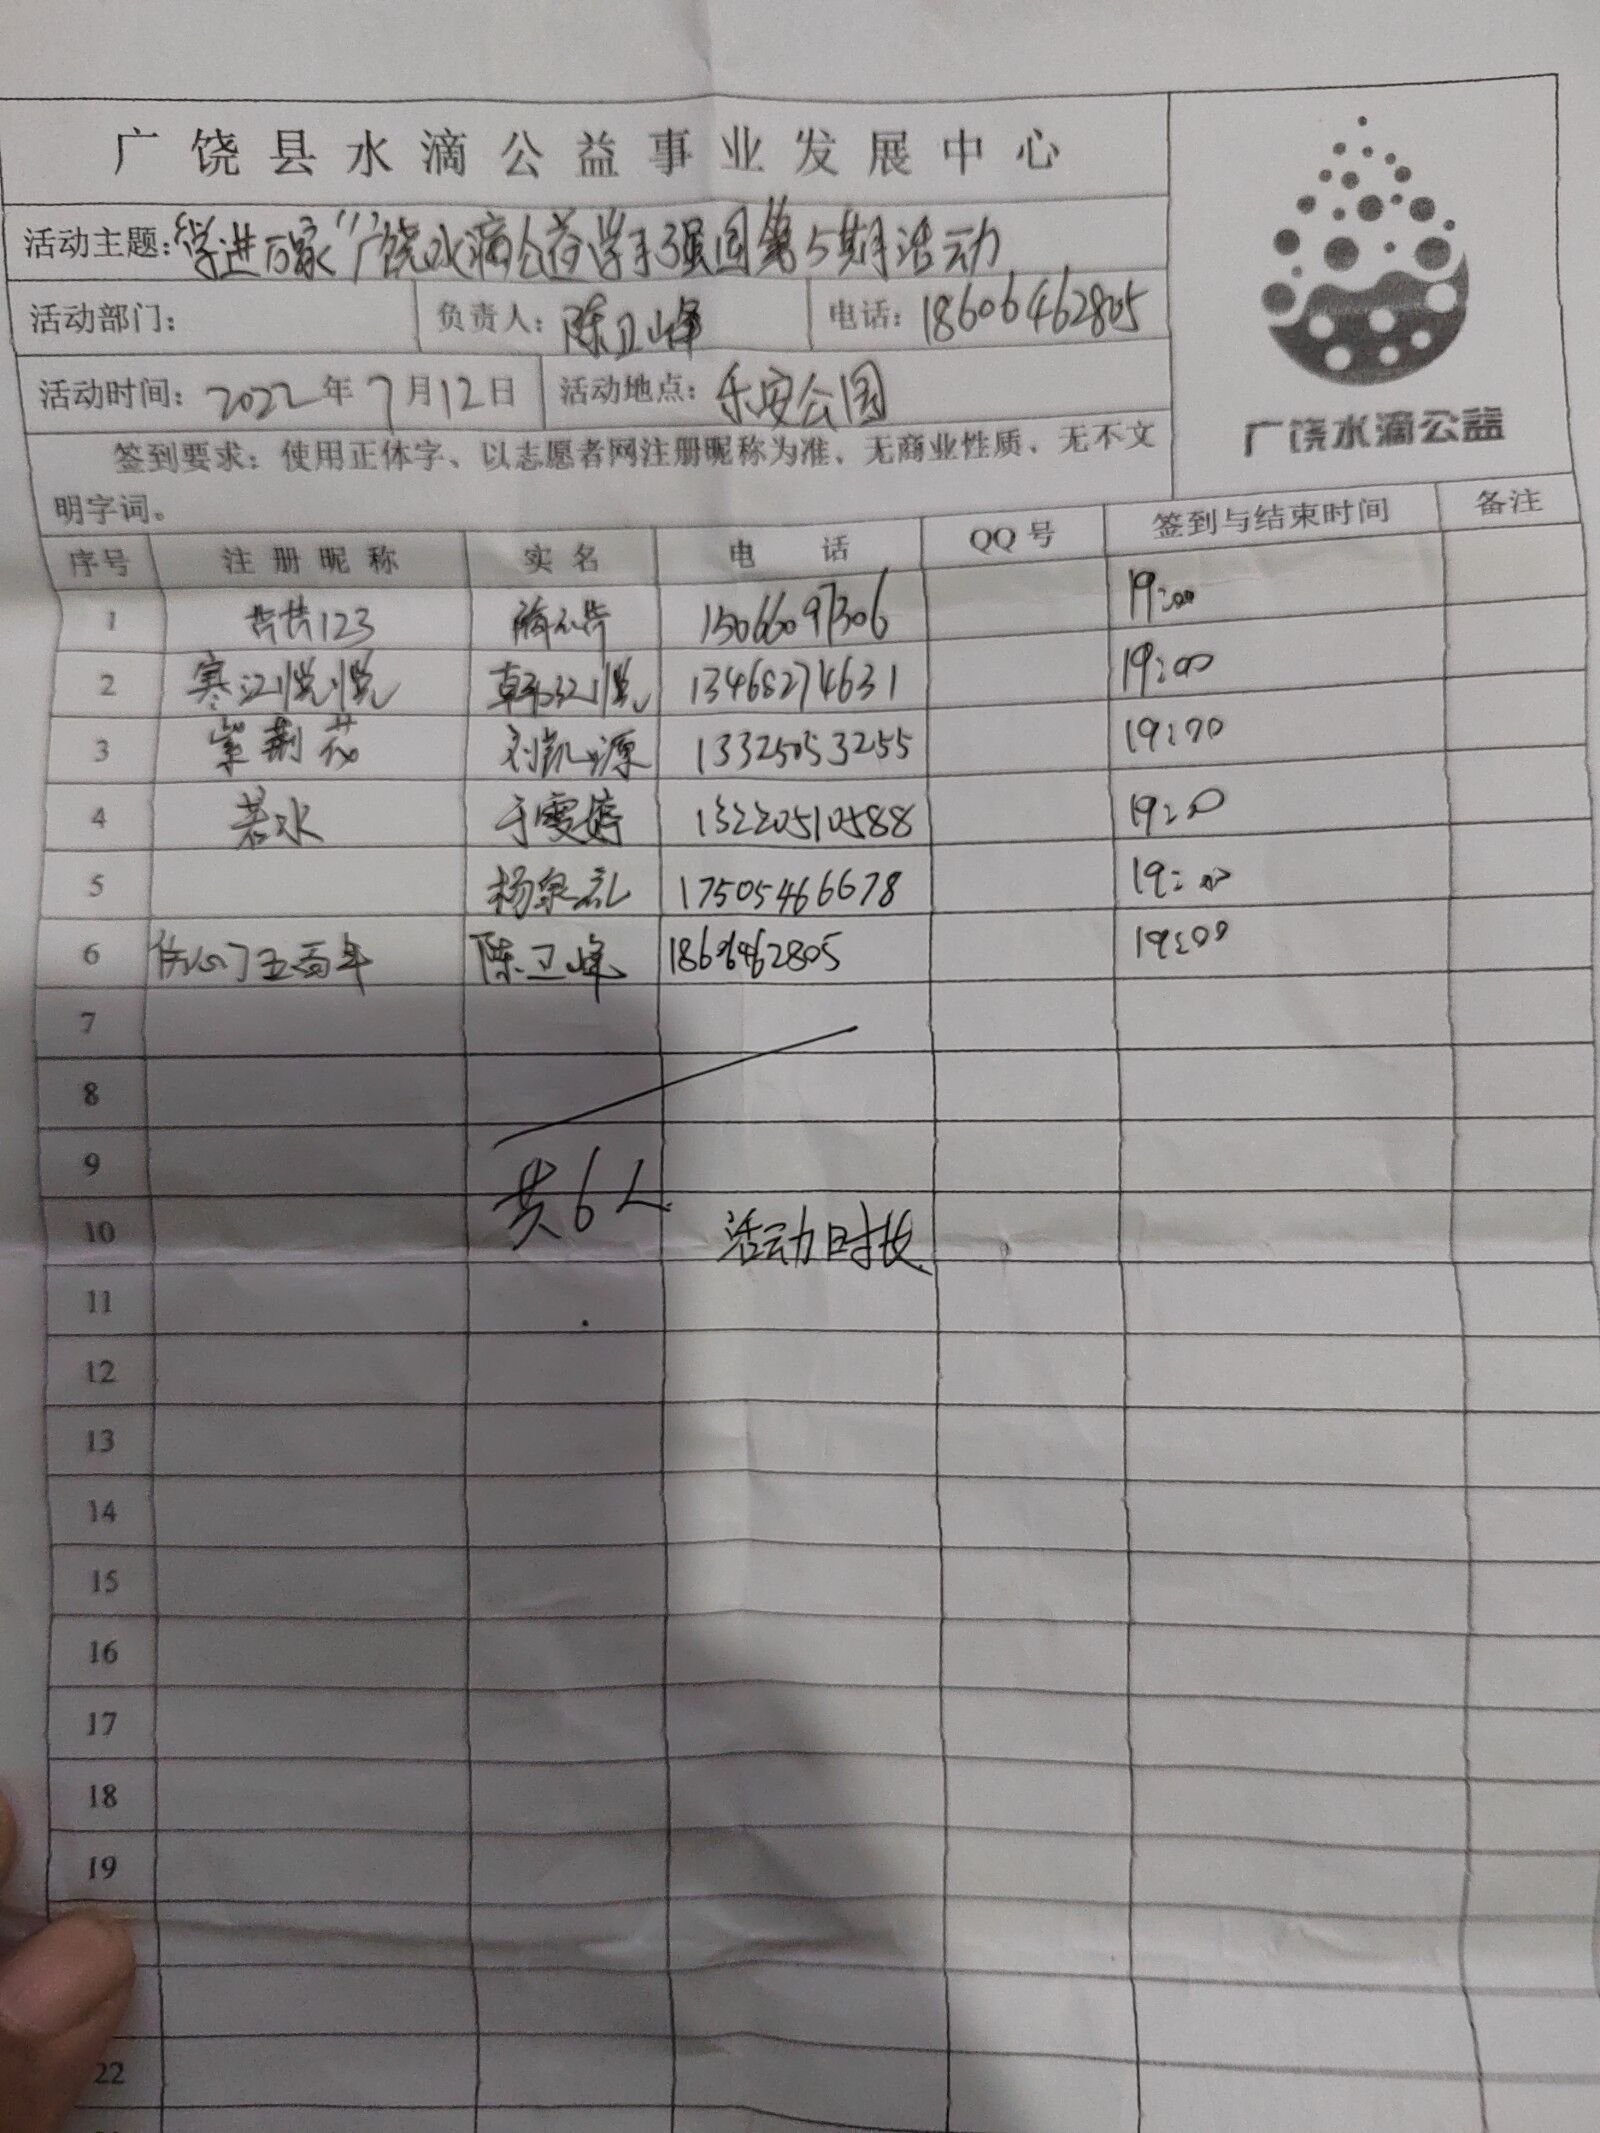 广饶县水滴公益事业发展中心
活动主题：“学进万家”广饶水滴公益学习强国第5期活动
活动部门： 负责人：陈卫峰 电话：18606462805
活动时间：2022年7月12日 活动地点：乐安公园
广饶水滴公益
签到要求：使用正体字、以志愿者网注册昵称为准、无商业性质、无不文
明字词。
序号 注册昵称 实名 电话 QQ号 签到与结束时间 备注
1 芸芸123 15066097306 19:00
2 寒江悦悦 韩江悦 13468274631 19:00
3 紫荆花 刘凯源 13325053255 19:00
4 若水 于雯婷 13220510588 19:00
5 杨泉礼 17505466678 19:00
6 五百年 陈卫峰 18606462805 19:00
7
8
9
共6人
10 活动时长
11
12
13
14
15
16
17
18
19
22